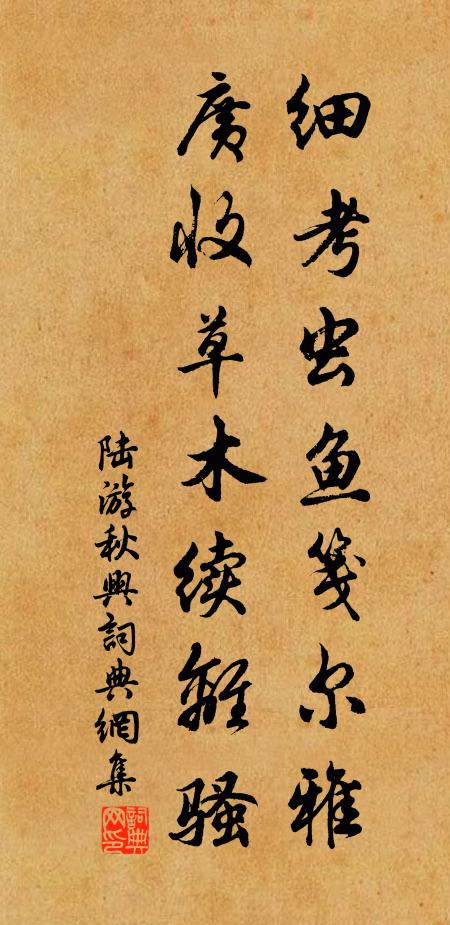 细考虫鱼笺尔雅
广收草木续离骚
陆游秋興詞典網集
詞典网印